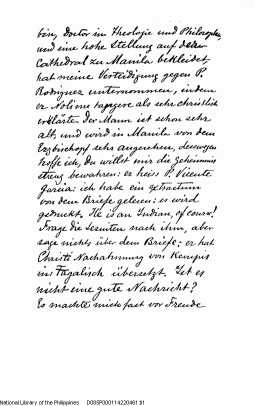 bin, Doctor in Theologie und Philosophie,
und eine hohe Stellung auf der
Cathedral zu Manila bekleidet,
hat meine Verteidigung gegen P.
Rodriguez unternommen, indem
er Noli me tangere als sehr christlich
erklärte. Der Mann ist schon sehr
alt, und wird in Manila von dem
Erzbischof sehr angesehen, deswegen
hoffe ich, du willst mir die Geheimniss
streng bewahren: er heiss P. Vicente
Garcia: ich habe ein extractum
von dem Briefe gelesen; es wird
gedruckt. He is an Indian, of cours!
Frage die Jesuiten nach ihm, aber
sage nichts über dem Briefe; er hat
Christi Nachahmung von Kempis
ins Tagalisch übersetzt. Ist es
nicht eine gute Nachricht?
Es machte mich fast vor Freude
National Library of the Philippines D00SP000114220461 51